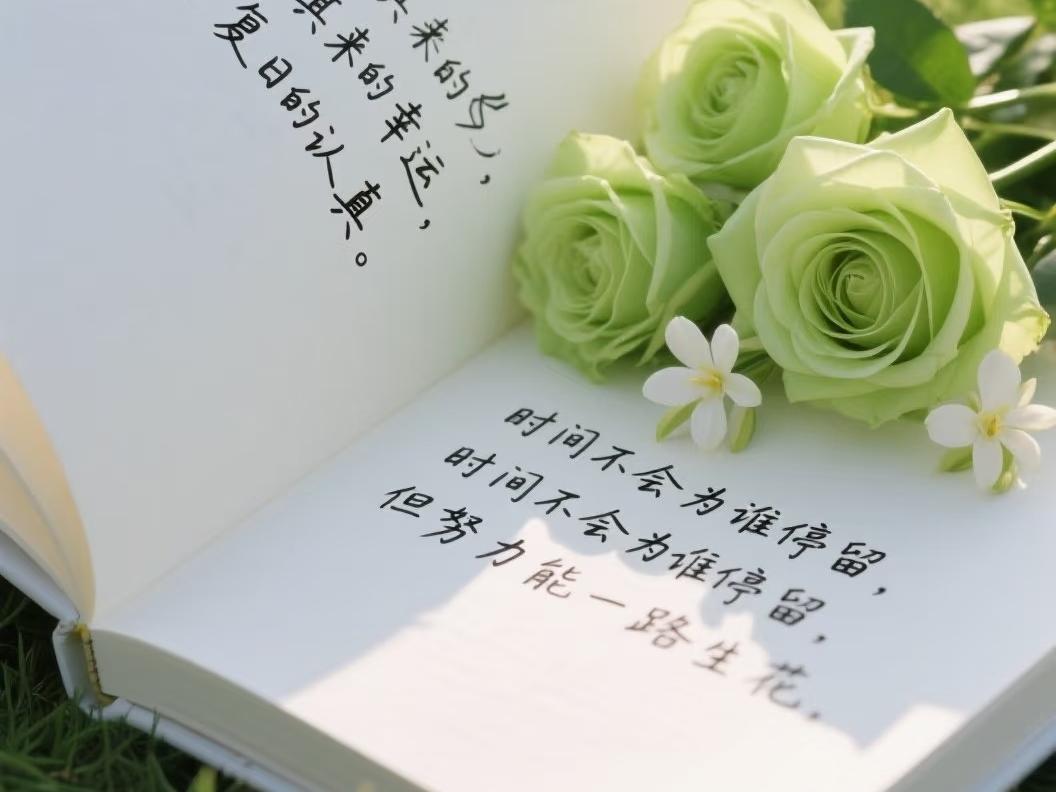 来的
真来的幸运，
复日的认真。
时间不会为谁停留，
时间不会为谁停留，
但努力能一路生花，